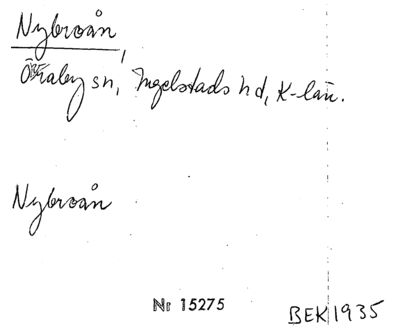 Nybroån
Öraby sn, Ingelstads hd, K-län.
Nybroån
Nr 15275
BEK 1935